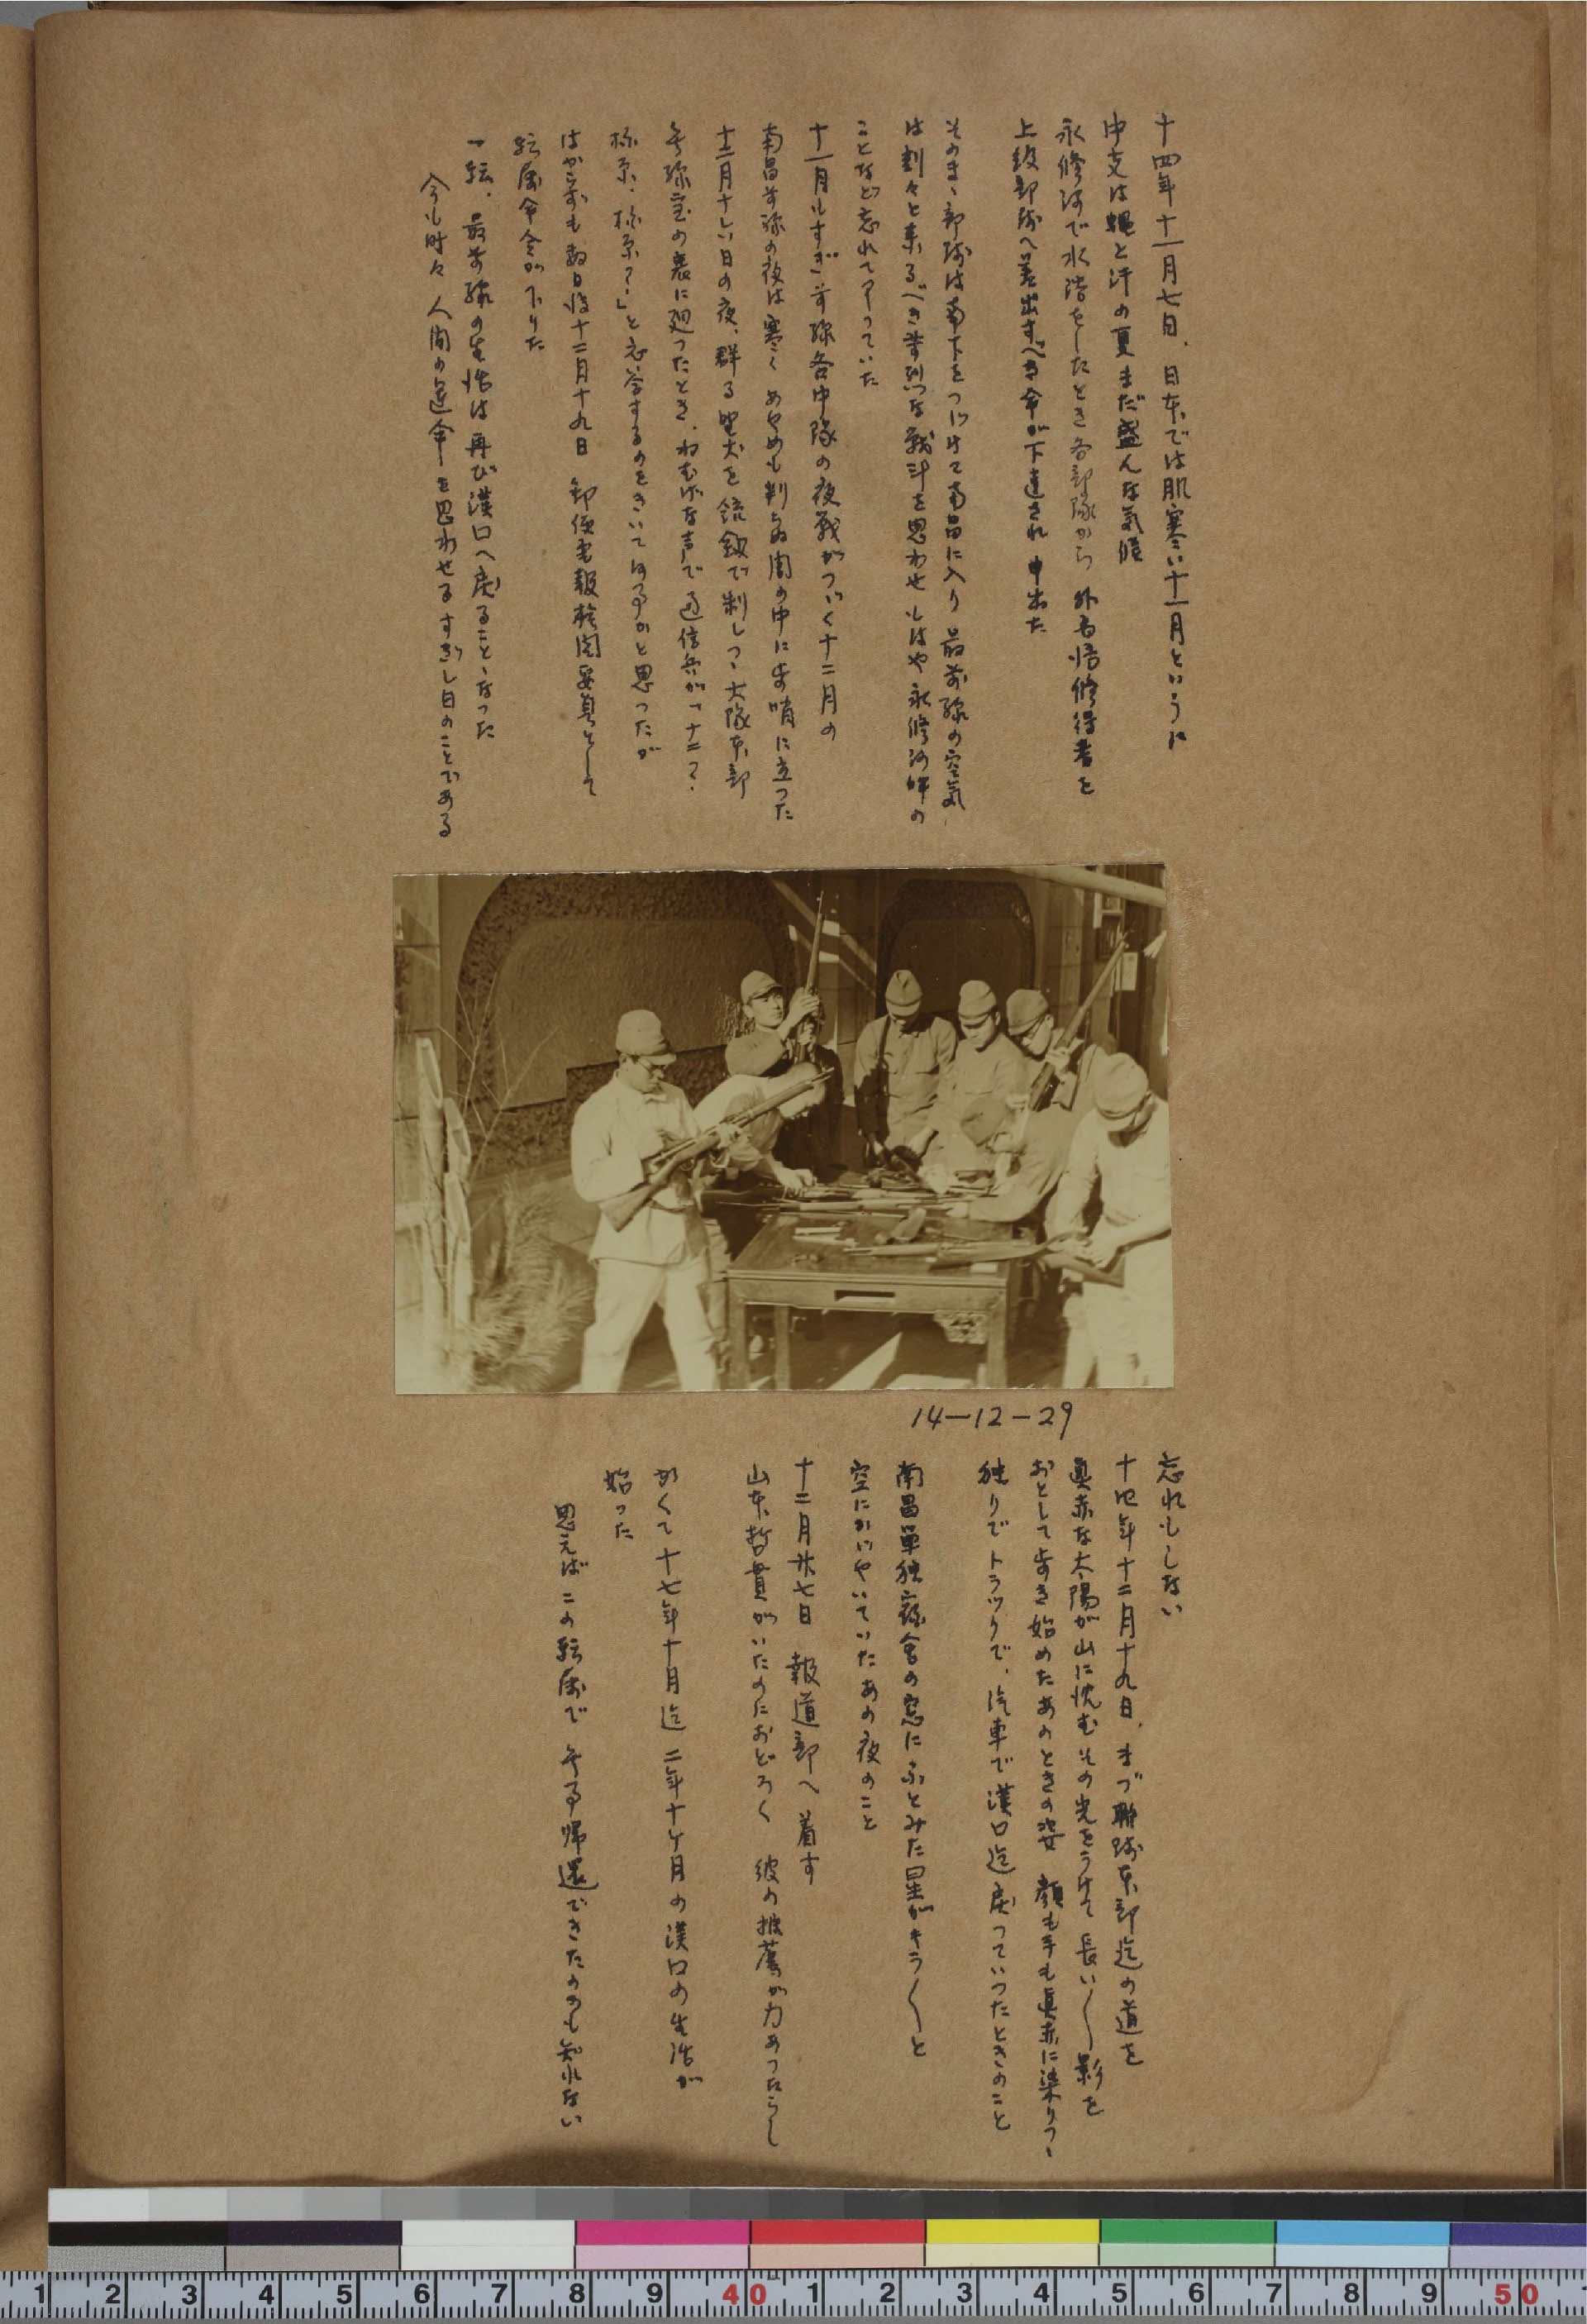 十四年十一月七日、日本では肌寒い十一月というに
中支は蝿と汗の夏まだ盛んな気候
永修河で水浴をしたとき各部隊から 外国語修得者を
上級部隊へ差出すべき命が下達され 申出た
そのまゝ部隊は南下をつづけて南昌に入り 最前線の空気
は刻々と来るべき苛烈な戦斗を思わせ もはや永修河畔の
ことなど忘れてアっていた
十一月もすぎ 前線各中隊の夜戦がつづく十二月の
南昌前線の夜は寒く あやめも判らぬ闇の中に歩哨に立った
十二月十六日の夜、群る野犬を銃剣で制しつゝ大隊本部
無線室の裏に廻ったとき、ねむげな声で通信兵が「十二？、
栃原、栃原？」と応答するのをきいて何事かと思ったが
はからずも数日後十二月十九日 郵便電報検閲要員として
転属命令が下りた
一転、最前線の生活は再び漢口へ戻ることゝなった
今も時々 人間の運命を思わせるすぎし日のことである
14-12-29
忘れもしない
十四年十二月十九日、まづ聯隊本部迄の道を
真赤な太陽が山に沈むその光をうけて 長い〱影を
おとして歩き始めたあのときの姿 顔も手も真赤に染りつゝ
独りで トラックで、汽車で漢口迄戻っていったときのこと
南昌単独宿舎の窓にふとみた星がキラ〱と
空にかゞやいていたあの夜のこと
十二月廿七日 報道部へ着す
山本哲貫がいたのにおどろく 彼の推薦が力あったらし
かくて十七年十月迄 二年十ヶ月の漢口の生活が
始った
思えばこの転属で 無事帰還できたのかも知れない